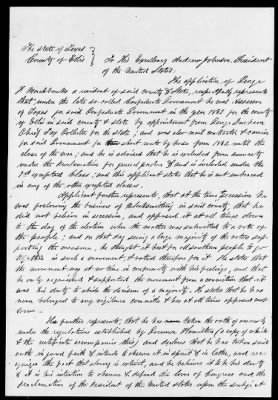 The State of Texas
County of Ellis
To His Excellency Andrew Johnson, President
of the United States.
The application of George
a resident of said County & State, respectfully represents
that, under the late so-called Confederate Government he was Assessor
of Taxes for said Confederate Government in the year 1863 for the county
of Ellis in said county & state by appointment from George Durham
Chief Tax Collector for the state; and was also mail contractor & carrier
for said Government for short route by horse from 1862 until the
close of the war; and he is advised that he is excluded from amnesty
under the Proclamation for general pardon & and is included under the
1st excepted class; and this applicant states that he is not embraced
in any of the other excepted classes.
Applicant further represents, that at the time Secession he
was following the business of Blacksmithing in said county, that he
did not believe in secession, and opposed it at all times down
to the day of the election when the matter was submitted to a vote of
the people; and on that day seeing a large majority of the voters sup-
porting the measure, he thought it best for all southern people to go
together in such a movement, & voted therefor for it. He states that
the movement was at no time in conformity with his feelings, and that
he only supported the movement from a conviction that it
was his duty to abide the decision of a majority. He states that he has
never belonged to any vigilance committee & has at all times opposed mob
law.
He further represents, that he has taken the oath of amnesty
under the regulations established by Governor Hamilton (a copy of which
& the certificate accompanies this) and declares that he has taken said
oath in good faith & intends to observe it in spirit & in letter, and rec-
ognizes the fact that slavery is extinct, and he believes it to be his duty
& it is his intention to observe & defend the laws of Congress and the
proclamation of the President of the United States upon the subject